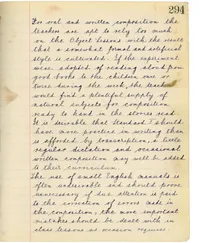 294
For oral and written composition the
teachers are apt to rely too much
on the Object Lessons with the result
that a somewhat formal and artificial
style is cultivated. If the experiment
were adopted of reading aloud from
good books to the children once or
twice during the week, the teachers
would find a plentiful supply of
natural subjects for composition
ready to hand in the stories read.
It is desirable that Standard I should
have more practice in writing than
is afforded by transcription, a little
regular dictation and occasional
written composition may well be added
to their curriculum.
The use of small English manuals is
often undesirable and should prove
unnecessary if due attention is paid
to the correction of errors made in
the composition, the more important
mistakes should be dealt with in
class lessons as occasion requires